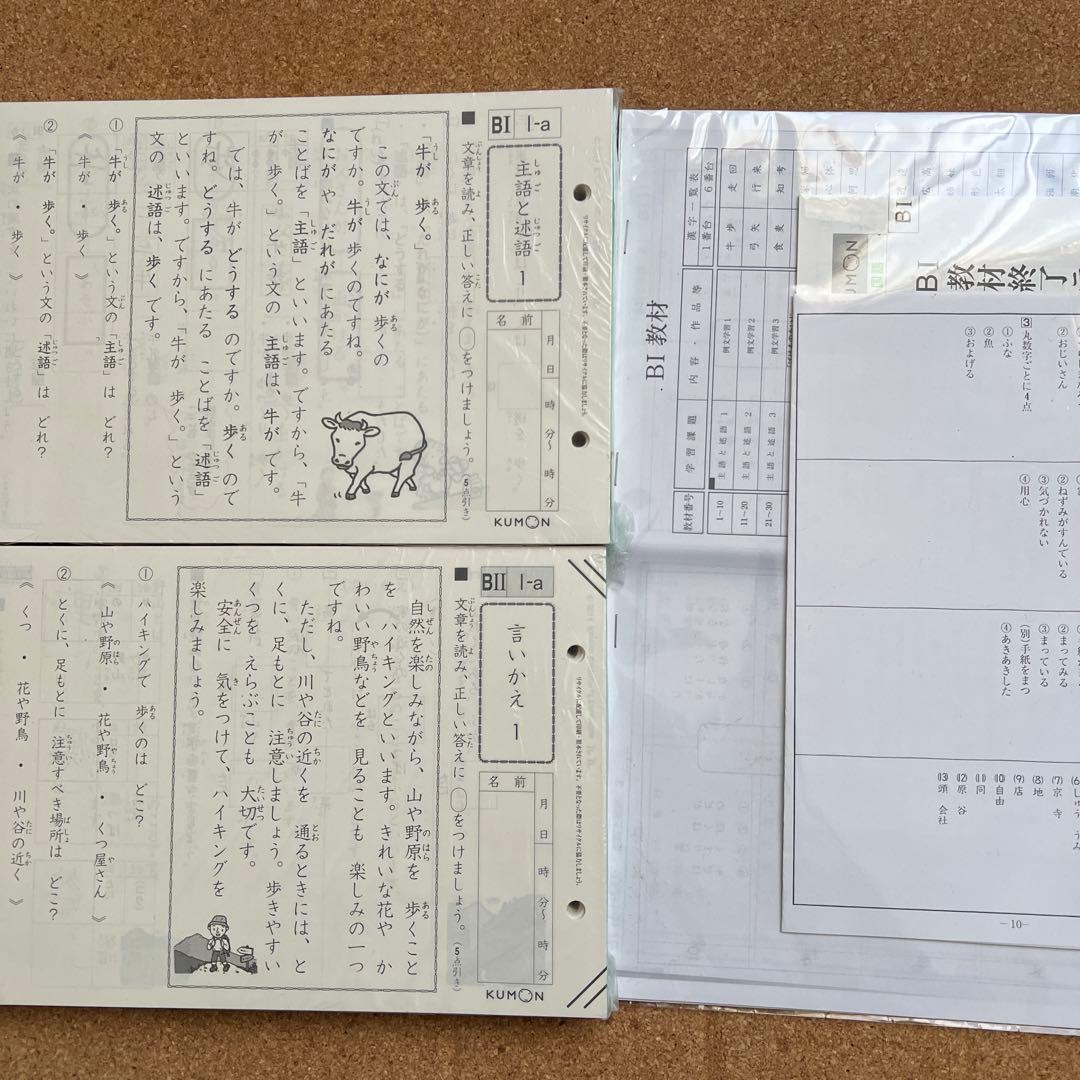 BI 1-a
主語と述語 1
名前
月 日 時 分〜 時 分
KUMON
文章を読み、正しい答えに○をつけましょう。(5点引き)
「牛が 歩く。」
この文では、なにが 歩くの
ですか。牛が 歩くのですね。
なにが や だれが にあたる
ことばを 「主語」 といいます。ですから、「牛
が 歩く。」という文の 主語は、牛が です。
では、牛が どうする のですか。歩く ので
すね。どうする にあたる ことばを 「述語」
といいます。ですから、「牛が 歩く。」という
文の 述語は、歩く です。
① 「牛が 歩く。」という文の 「主語」は どれ?
《 牛が ・ 歩く 》
② 「牛が 歩く。」という文の 「述語」は どれ?
《 牛が ・ 歩く 》
BII 1-a
言いかえ 1
名前
月 日 時 分〜 時 分
KUMON
文章を読み、正しい答えに○をつけましょう。(5点引き)
自然を楽しみながら、山や野原を 歩くこと
を ハイキングといいます。きれいな花や か
わいい野鳥などを 見ることも 楽しみの一つ
ですね。
ただし、川や谷の近くを 通るときには、と
くに、足もとに 注意しましょう。歩きやすい
くつを えらぶことも 大切です。
安全に 気をつけて、ハイキングを
楽しみましょう。
① ハイキングで 歩くのは どこ?
《 山や野原 ・ 花や野鳥 ・ くつ屋さん 》
② とくに、足もとに 注意すべき場所は どこ?
《 くつ ・ 花や野鳥 ・ 川や谷の近く 》
BI 教材
教材番号 学習課題 内容・作品等 漢字一覧表
1番台 6番台
1~10 主語と述語 1 例文学習1 牛 歩 走 回
11~20 主語と述語 2 例文学習2 弓 矢 行 来
21~30 主語と述語 3 例文学習3 食 麦 知 考
BI
UMON
国語
BI
教材終了テ
②おじいさん
③丸数字ごとに4点
①ふな
②魚
③およげる
②ねずみがすんでいる
③気づかれない
④用心
②まってみる
③まっている
(別)手紙をまつ
④あきあきした
⑺京 寺
⑻地
⑼店
⑽自由
⑾同
⑿原 谷
⒀頭 会社
-10-